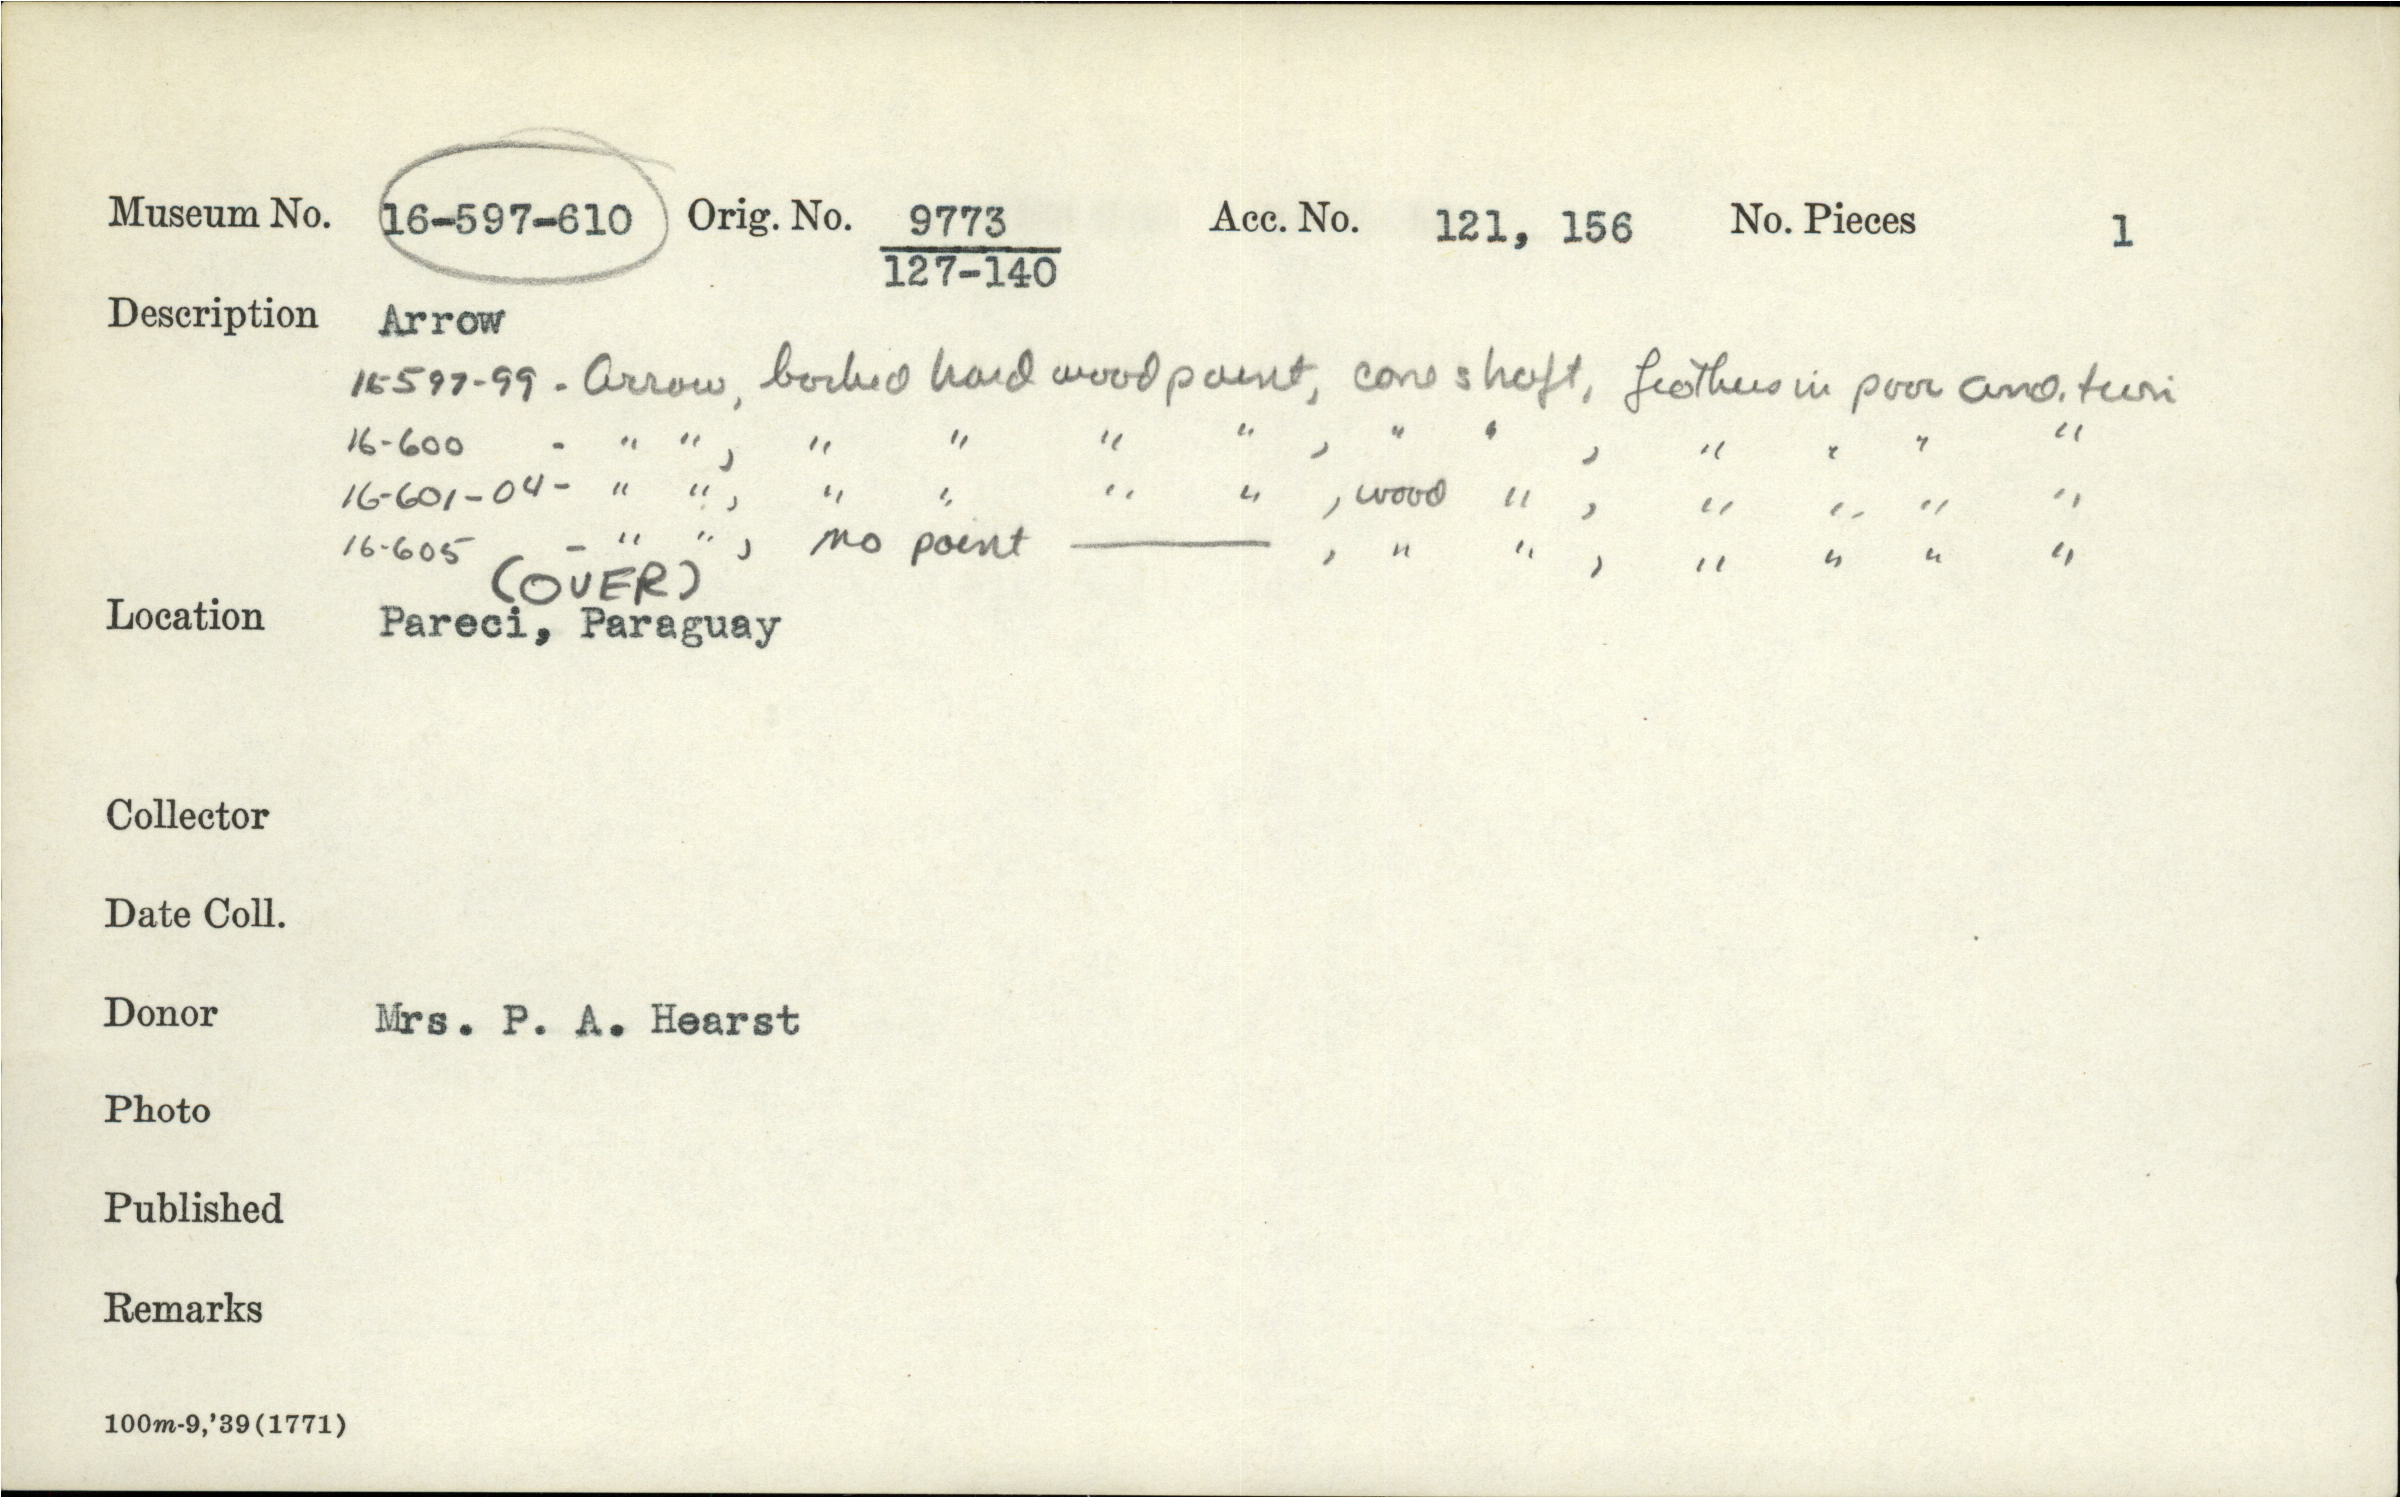 Museum No. 16-597-610 Orig. No. 9773 Acc. No. 121, 156 No. Pieces 1
127-140
Description Arrow
16-597-99 - Arrow, barbed hard wood point, cane shaft, feathers in poor cond.
16-600 - " ", " " " ", " ", " " " "
16-601-04 - " ", " " " ", wood ", " " " "
16-605 - " ", no point ———, " ", " " " "
(OVER)
Location Pareci, Paraguay
Collector
Date Coll.
Donor Mrs. P. A. Hearst
Photo
Published
Remarks
100m-9,'39(1771)